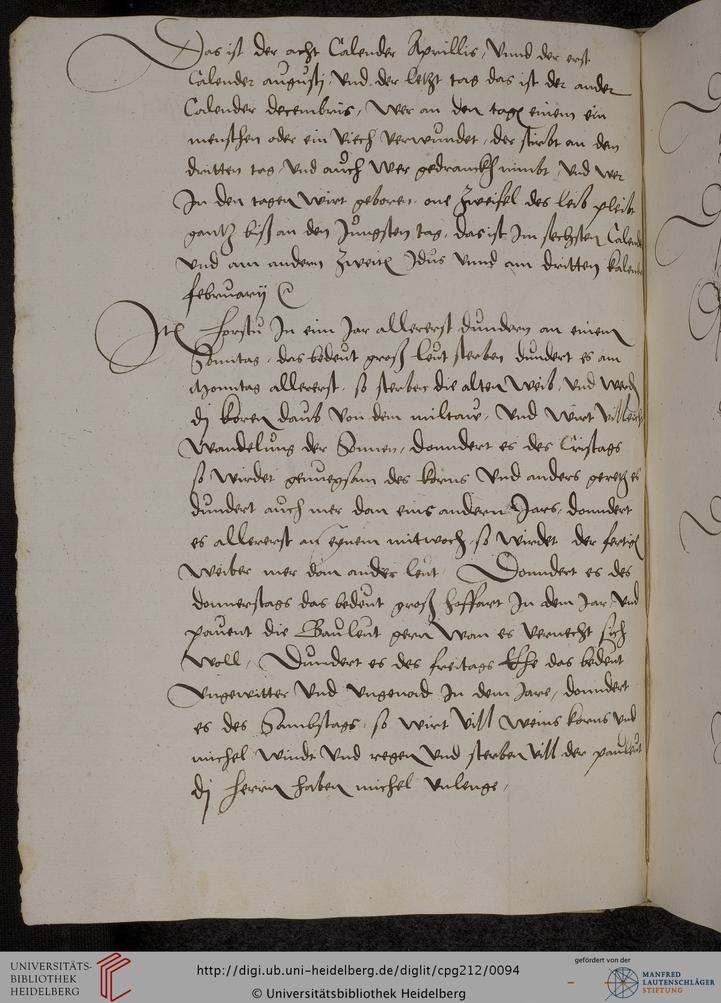 Das ist der acht Calender Aprillis, Vnnd der erst
Calender augustj, Vnd der letzt tag das ist der ander
Calender decembris, Wer an den tagen einem ein
menschen oder ein Viech Verwundet, der stirbt an dem
dritten tag, Vnd auch Wer gedranckh nimbt, Vnd wer
In den tagen Wirt geboren, one Zweifel des leib pleibt
gantz biß an den Jungsten tag, das ist Im sechsten Calend
Vnd am andern Zweiten Idus Vnnd am dritten kalend
februarij
Item horstu In eim Jar allererst dundern an einem
Sonntag, das bedeut groß leut sterben dundert es am
Monntag allererst, so sterben die alten Weib, Vnd Werden
dj koren daub Von dem miltaw, Vnd Wirt
Wandelung der Sonnen, donndert es des Eristags
so Wirdet genuegsam des korns Vnd anders geretz es
dundert auch mer dan eins andern Jars, donndert
es allererst an eynem mitwoch, so Wirdet der
Weiber mer dan ander leut, Donndert es des
donnerstags das bedeut groß hoffart In dem Jar Vnd
pauent die Bauleut gern Wan es Vernecht sich
Woll, Dundert es des freitags das bedeut
Vngewitter Vnd Vngenad In dem Jare, donndert
es des Sambstags, so Wirt Vill Weins korns Vnd
michel Windt Vnd regen Vnd sterben Vill der pauleut
dj herrn haben michel Vrleuge,
UNIVERSITÄTS-
BIBLIOTHEK
HEIDELBERG
http://digi.ub.uni-heidelberg.de/diglit/cpg212/0094
© Universitätsbibliothek Heidelberg
gefördert von der
MANFRED
LAUTENSCHLÄGER
STIFTUNG